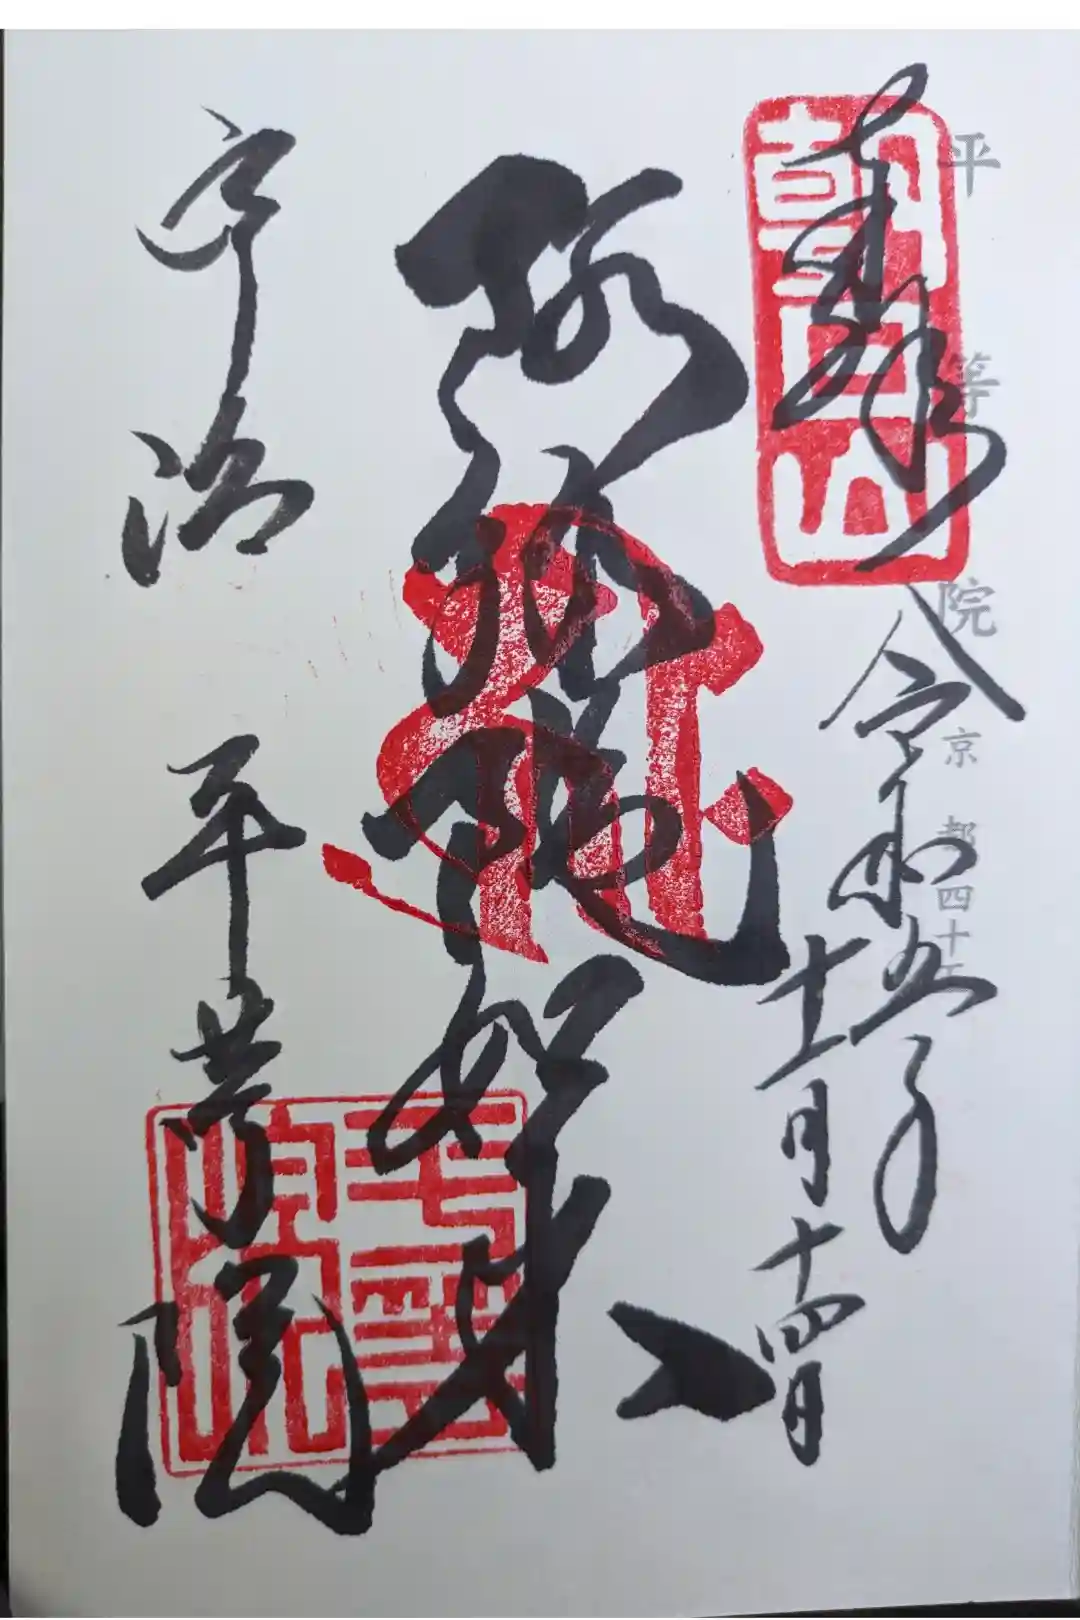 平等院
京都四十
奉拝
朝日山
令和五年
十一月十四日
阿弥陀如来
宇治 平等院
平等院印